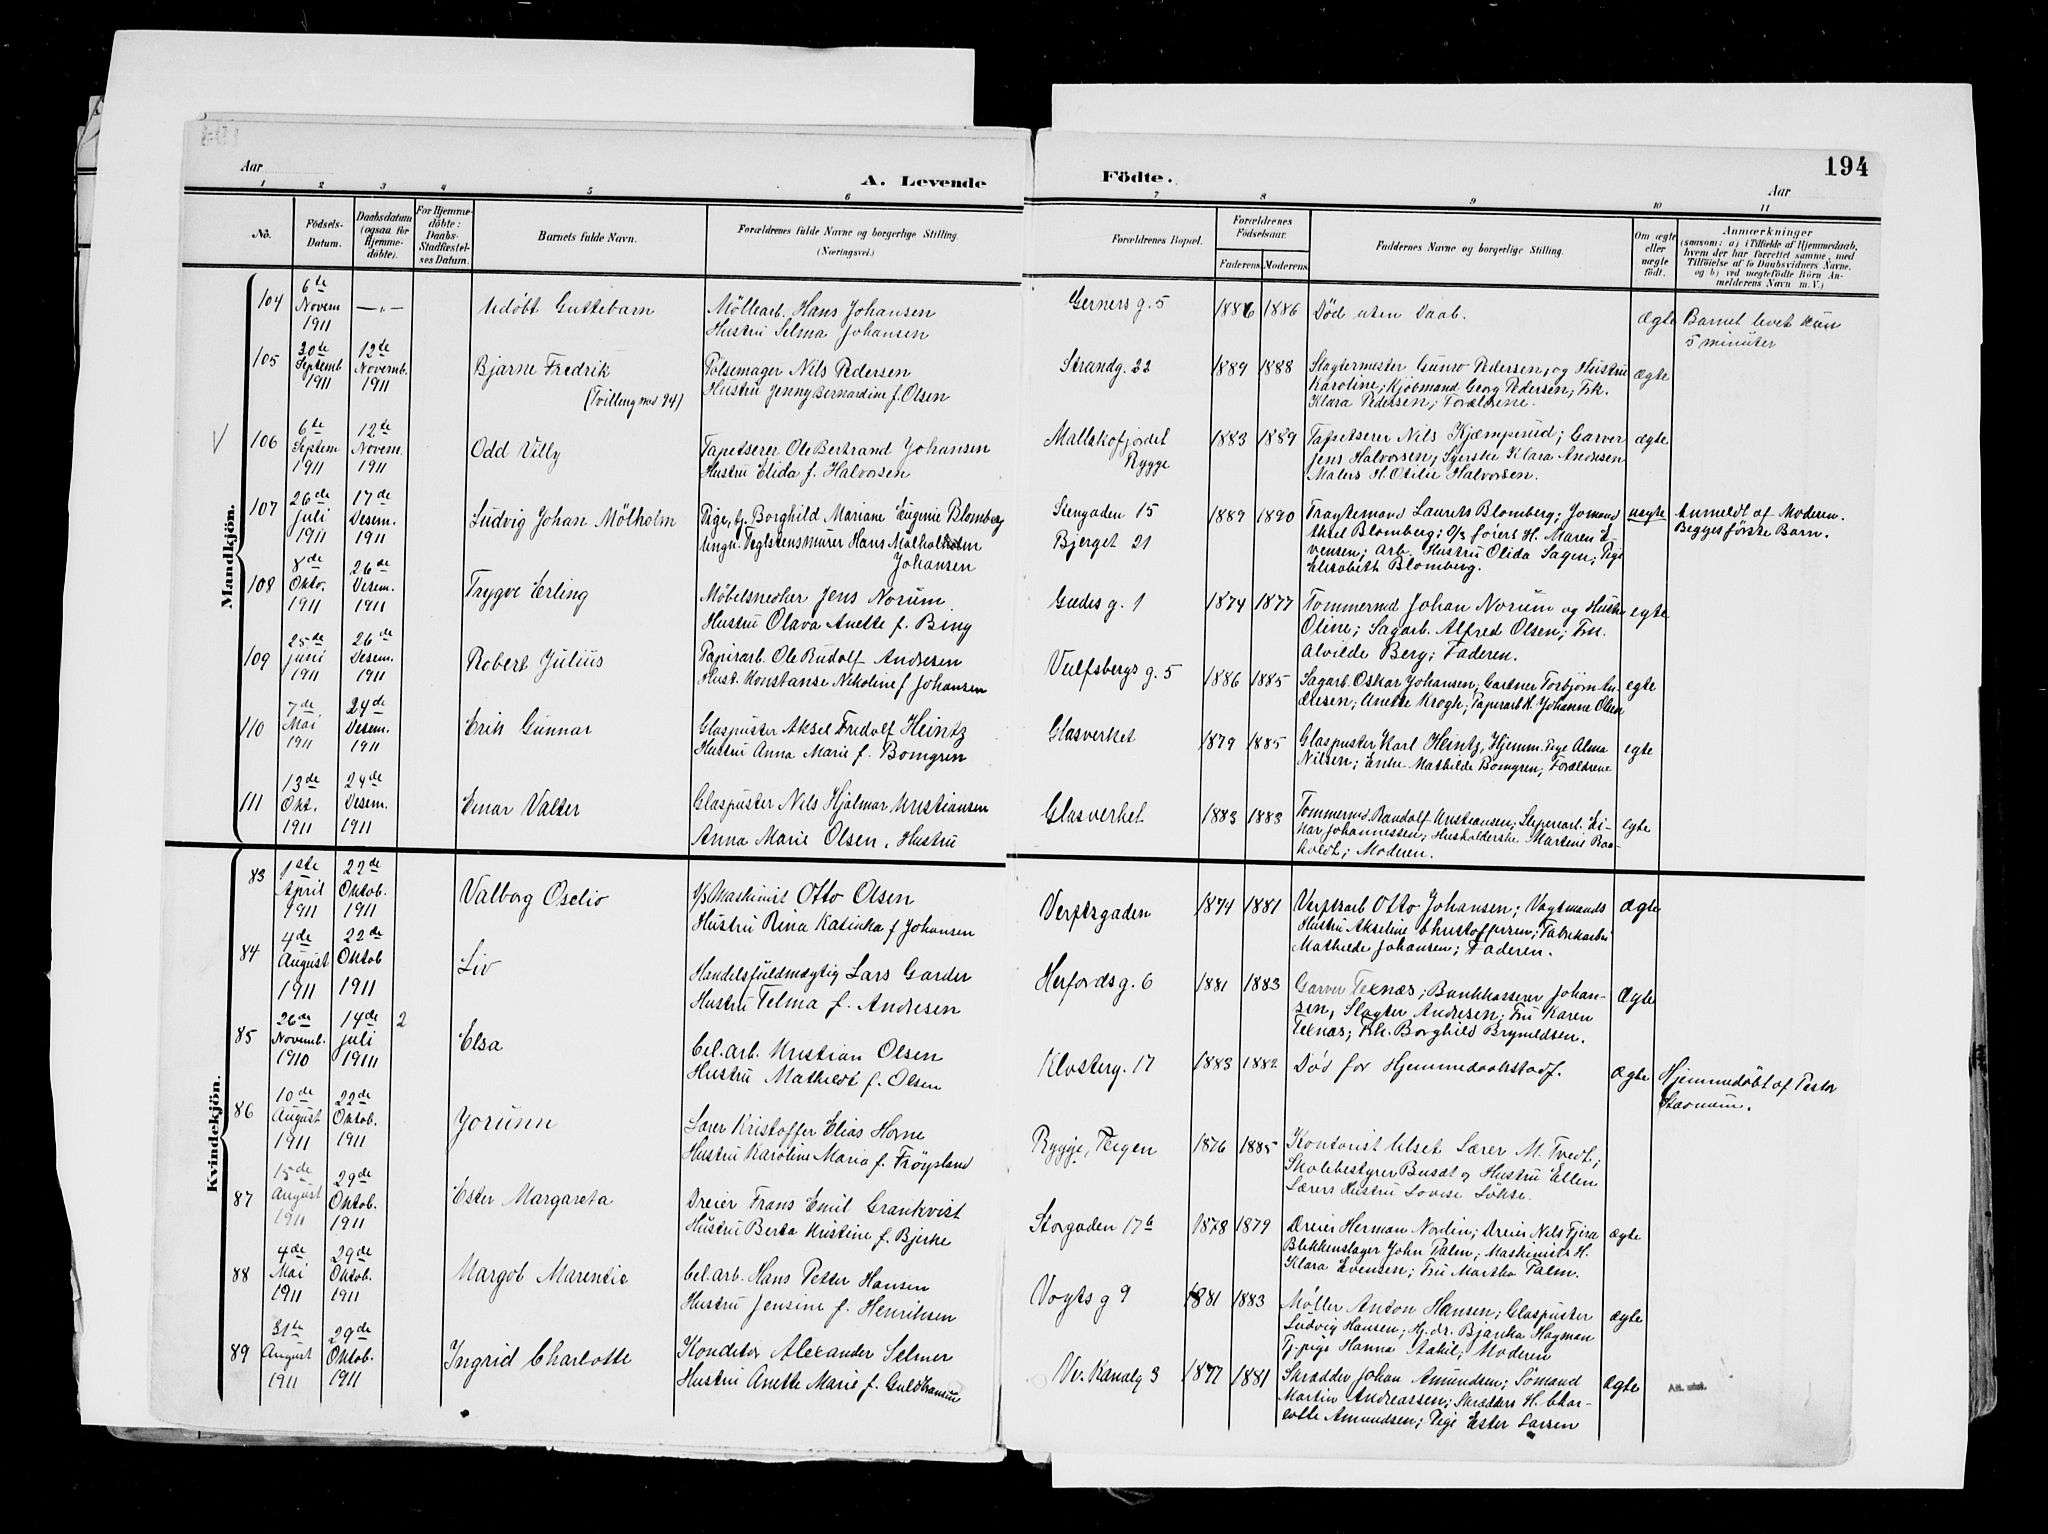 194
Aar
A. Levende
Födte.
Aar
1 2 3 4 5 6 7 8 9 10 11
No.
Födsels-Datum.
Daabsdatum (ogsaa for Hjemme-döbte).
For Hjemme-döbte: Daabs-Stadfæstel-ses Datum.
Barnets fulde Navn.
Forældrenes fulde Navne og borgerlige Stilling
(Næringsvei.)
Forældrenes Bopæl.
Forældrenes Födselsaar.
Faderens. Moderens.
Faddernes Navne og borgerlige Stilling.
Om ægte eller uægte födt.
Anmærkninger
(saasom: a) i Tilfælde af Hjemmedaab, hvem der har forrettet samme, med Tilföielse af to Daabsvidners Navne, og b) ved uægtefödte Börn An-melderens Navn m. V.)
Mandkjön.
104 6te Novem 1911 —„— Udøbt Guttebarn
Møllearb. Hans Johansen
Hustru Selma Johansen
Gerners g. 5 1886 1886 Død uten Daab. Ægte Barnet levet kun
5 minuter
105 30te Septemb 1911 12te Novemb. 1911 Bjarne Fredrik
(Tvilling med 94)
Pølsemager Nils Pedersen
Hustru Jenny Bernardine f. Olsen
Strandg. 22 1889 1888 Slagtermester Gunro Pedersen, og Hustru
Karoline; Kjøbmand Georg Pedersen; Frk.
Klara Pedersen; Forældrene. ægte
√ 106 6te Septem 1911 12te Novem. 1911 Odd Villy
Tapetserer Ole Bertrand Johansen
Hustru Elida f. Halvorsen
Mallakofjordet
Rygge
1883 1889 Tapetserer Nils Kjæmperud; Garver
Jens Halvorsen, Syerske Klara Andresen
Malers H. Otilie Halvorsen. ægte
107 26de juli 1911 17de Desem. 1911 Ludvig Johan Mölholm
Pige, tj. Borghild Mariane Eugenie Blomberg
Ungk. Teglstensmurer Hans Mølholm
Johansen
Stengaden 15
Bjerget 21
1889 1890 Trøgtemand Laurets Blomberg; Jomand
Aksel Blomberg; O/s føiers H. Maren E-
vensen; Arb. Hustru Olida Sagen; Pige
Elisabeth Blomberg. uegte Anmeldt af Moderen.
Begges første Barn.
108 8de Okto. 1911 26de Desem. 1911 Trygve Erling
Møbelsnedker Jens Norum
Hustru Olava Anette f. Bing
Gudes g. 1 1874 1877 Tommermd Johan Norum og Hustru
Oline; Sagarb. Alfred Olsen; Fru.
Alvilde Berg; Faderen. egte
109 25de juni 1911 26de Desem. 1911 Robert Julius
Papirarb. Ole Rudolf Andresen
Hust. Konstanse Nikoline f Johansen
Vulfsbergs g. 5 1886 1885 Sagarb. Oskar Johansen; Gartner Torbjørn An-
dresen; Anette Krogh; Papirarb H. Johanne Olsen egte
110 7de Mai 1911 24de Desem. 1911 Erik Gunnar
Glaspuster Aksel Fredolf Heintz
Hustru Anna Marie f. Bomgren
Glasverket 1879 1885 Glaspuster Karl Heintz, Hjemm. Pige Alma
Nilsen; Enke Mathilde Bomgren; Forældrene egte
111 13de Okt. 1911 24de Desem. 1911 Einar Valter
Glaspuster Nils Hjalmar Kristiansen
Anna Marie Olsen, Hustru
Glasverket 1883 1883 Tommermd. Randolf Kristiansen; Sliperiarb. Ei-
nar Johannessen; Husholderske Martine Roa-
holdt; Moderen. egte
Kvindekjön.
83 1ste April 1911 22de Oktob. 1911 Valborg Oselio
D/s Maskinist Otto Olsen
Hustru Rina Katinka f Johansen
Verftsgaden 1874 1881 Verftsarb Otto Johansen; Vagtmands
Hustru Akseline Christoffersen; Fabrikarbei
Mathilde Johansen; Faderen. Ægte
84 4de August 1911 22de Oktob 1911 Liv
Handelsfuldmægtig Lars Garder
Hustru Telma f. Andresen
Herfordsg. 6 1881 1883 Garver Texnæs; Bankkasserer Johan-
sen, Slagter Andresen; Fru Karen
Texnæs; Frk. Borghild Brynildsen. Ægte
85 26de Novemb. 1910 14de juli 1911 2 Elsa
Cel. arb. Kristian Olsen
Hustru Mathilde f. Olsen
Klosterg. 17 1883 1882 Død for Hjemmedaabstadf. Ægte Hjemmedøbt af Pastor
Stavnum.
86 10de August 1911 22de Oktob. 1911 Jorunn
Lærer Kristoffer Elias Horne
Hustru Karoline Maria f. Frøysland
Rygge, Teigen 1876 1885 Kontorist Ulset Lærer M. Tvedt;
Skolebestyrer Busæt og Hustru Ellen
Lærers Hustru Lovise Løkse.
87 15de August 1911 29de Oktob. 1911 Ester Margareta
Dreier Frans Emil Grankvist
Hustru Berta Kristine f. Bjerke
Storgaden 17b 1878 1879 Dreier Herman Nordin; Dreier Nils Fjera
Blikkenslager John Palm; Maskinists H.
Klara Evensen; Fru Martha Palm. ægte
88 4de Mai 1911 29de Oktob. 1911 Margot Marentie
Cel. arb. Hans Petter Hansen
Hustru Jensine f. Henriksen
Vogts g 9 1881 1883 Møller Anton Hansen; Glaspuster
Ludvig Hansen; Hj. dr. Bjanka Hagman
Tj. pige Hanna Aakil; Moderen ægte
89 31te August 1911 29de Oktob. 1911 Ingrid Charlotte
Konditor Alexander Selmer
Hustru Anette Marie f. Guldbransen
Ve. Kanalg 3 1877 1881 Skradder Johan Amundsen; Sømand
Martin Andreassen; Skradders H. Char-
lotte Amundsen; Pige Ester Larsen Ægte Att. utst.